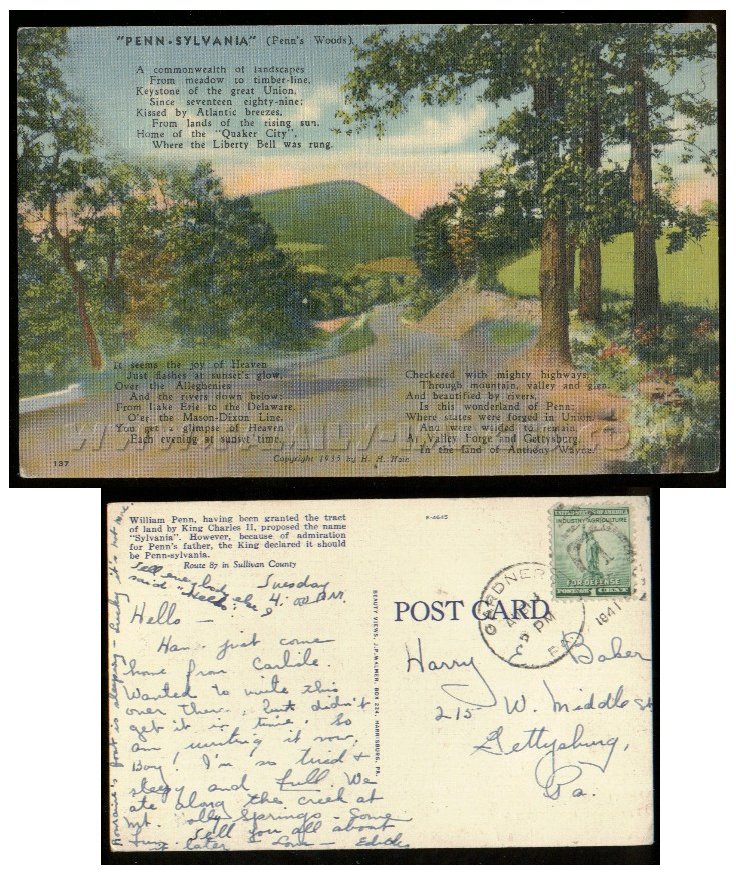 "PENN-SYLVANIA" (Penn's Woods)
A commonwealth of landscapes
From meadow to timber-line,
Keystone of the great Union,
Since seventeen eighty-nine;
Kissed by Atlantic breezes,
From lands of the rising sun,
Home of the "Quaker City",
Where the Liberty Bell was rung.
It seems the joy of Heaven
Just flashes at sunset's glow,
Over the Alleghenies
And the rivers down below;
From Lake Erie to the Delaware,
O'er the Mason-Dixon Line,
You get a glimpse of Heaven
Each evening at sunset time.
Checkered with mighty highways,
Through mountain, valley and glen,
And beautified by rivers,
Is this wonderland of Penn;
Where states were forged in Union,
And were welded to remain,
At Valley Forge and Gettysburg,
In the land of Anthony Wayne.
137
Copyright 1935 by H. H. Hain
William Penn, having been granted the tract
of land by King Charles II, proposed the name
"Sylvania". However, because of admiration
for Penn's father, the King declared it should
be Penn-sylvania.
Route 87 in Sullivan County
K-4645
Tell everybody else I
said "Hello."
Tuesday
4:00 P.M.
Hello -
Have just come
home from Carlile.
Wanted to write this
over there, but didn't
get it in time. So
am writing it now.
Boy! I'm so tired &
sleepy and full. We
ate along the creek at
Mt. Holly Springs - Some
fun. Tell you all about
it later - Love -
foot is sleeping - Lucky it's not more.
BEAUTY VIEWS, J.P. WALMER, BOX 224, HARRISBURG, PA.
POST CARD
GARDNERS
5 PM
PA.
1941
UNITED STATES OF AMERICA
INDUSTRY AGRICULTURE
FOR DEFENSE
POSTAGE 1 CENT
Harry E. Baker
215 W. Middle St
Gettysburg,
Pa.